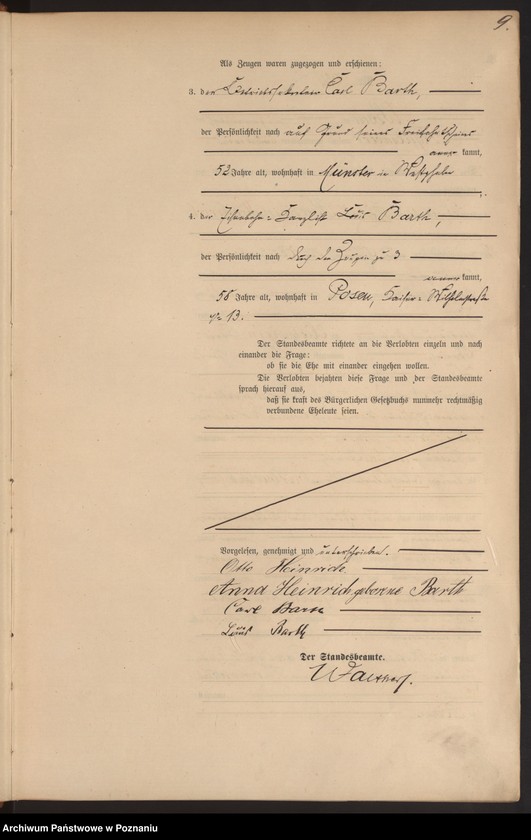 9.
Als Zeugen waren zugezogen und erschienen:
3. der Carl Barth,
der Persönlichkeit nach auf Grund seines
kannt,
52 Jahre alt, wohnhaft in Münster in Westphalen
4. der Eisenbahn-Kanzlist Louis Barth,
der Persönlichkeit nach durch den Zeugen zu 3
kannt,
56 Jahre alt, wohnhaft in Posen, Kaiser-Wilhelmstraße
No 13.
Der Standesbeamte richtete an die Verlobten einzeln und nach
einander die Frage:
ob sie die Ehe mit einander eingehen wollen.
Die Verlobten bejahten diese Frage und der Standesbeamte
sprach hierauf aus,
daß sie kraft des Bürgerlichen Gesetzbuchs nunmehr rechtmäßig
verbundene Eheleute seien.
Vorgelesen, genehmigt und unterschrieben.
Otto Heinrich
Anna Heinrich geborene Barth
Carl Barth
Louis Barth
Der Standesbeamte.
Archiwum Państwowe w Poznaniu